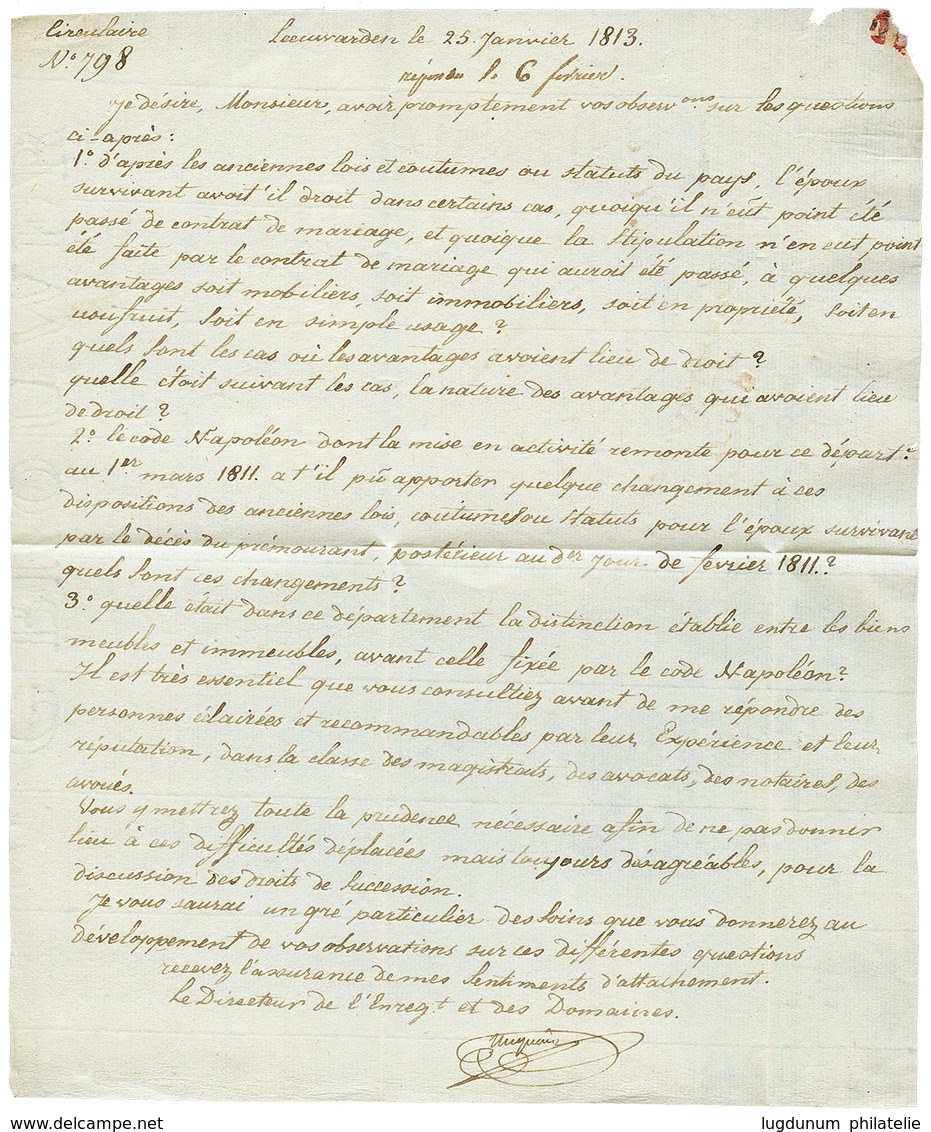 Circulaire
N° 798
Leeuwarden le 25 Janvier 1813.
répondu le 6 fevrier.
Je désire, Monsieur, avoir promptement vos observ.ons sur les questions
ci-après:
1° d'après les anciennes lois et coutumes ou statuts du pays, l'époux
survivant avoit'il droit dans certains cas, quoiqu'il n'eût point été
passé de contrat de mariage, et quoique la stipulation n'en eut point
été faite par le contrat de mariage qui auroit été passé, à quelques
avantages soit mobiliers, soit immobiliers, soit en propriété, soit en
usufruit, soit en simple usage?
quels sont les cas où les avantages avoient lieu de droit?
quelle étoit suivant les cas, la nature des avantages qui avoient lieu
de droit?
2° le code Napoléon dont la mise en activité remonte pour ce départ.t
au 1er mars 1811. a t'il pû apporter quelque changement à ces
dispositions des anciennes lois, coutumes ou statuts pour l'époux survivant
par le décès du prémourant, postérieur au der jour de fevrier 1811.?
quels sont ces changements?
3° quelle était dans ce département la distinction établie entre les biens
meubles et immeubles, avant celle fixée par le code Napoléon?
Il est très essentiel que vous consultiez avant de me répondre des
personnes éclairées et recommandables par leur Expérience et leur
réputation, dans la classe des magistrats, des avocats, des notaires, des
avoués.
Vous y mettrez toute la prudence nécessaire afin de ne pas donner
lieu à ces difficultés deplacées mais toujours désagréables, pour la
discussion des droits de succession.
Je vous saurai un gré particulier des soins que vous donnerez au
développement de vos observations sur ces différentes questions
recevez l'assurance de mes sentiments d'attachement.
Le Directeur de l'Enreg.t et des Domaines.
www.delcampe.net
lugdunum philatelie